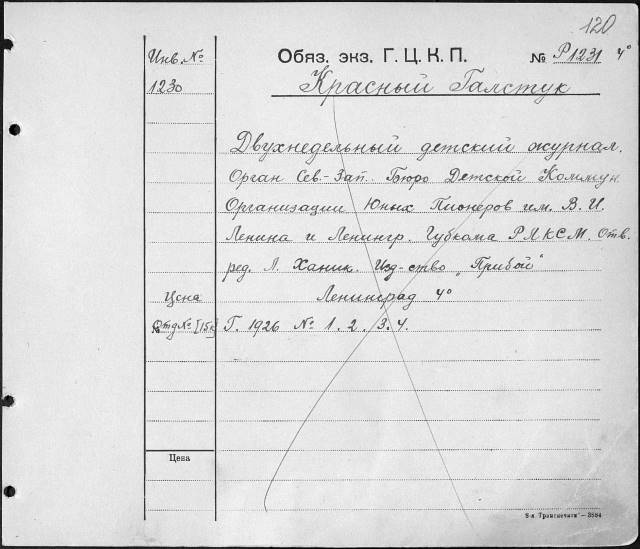 120
Инв. №
Обяз. экз. Г. Ц. К. П.
№ Р1231 4°
1230
Красный Галстук
Двухнедельный детский журнал.
Орган Сев.-Зап. Бюро Детской Коммун.
Организации Юных Пионеров им. В. И.
Ленина и Ленингр. Губкома РЛКСМ. Отв.
ред. Л. Ханик. Изд-ство „Прибой“
Цена
Ленинград 4°
Отд № [15к]
Г. 1926 № 1. 2. 3. 4.
Цена
8-я Транспечати — 3584